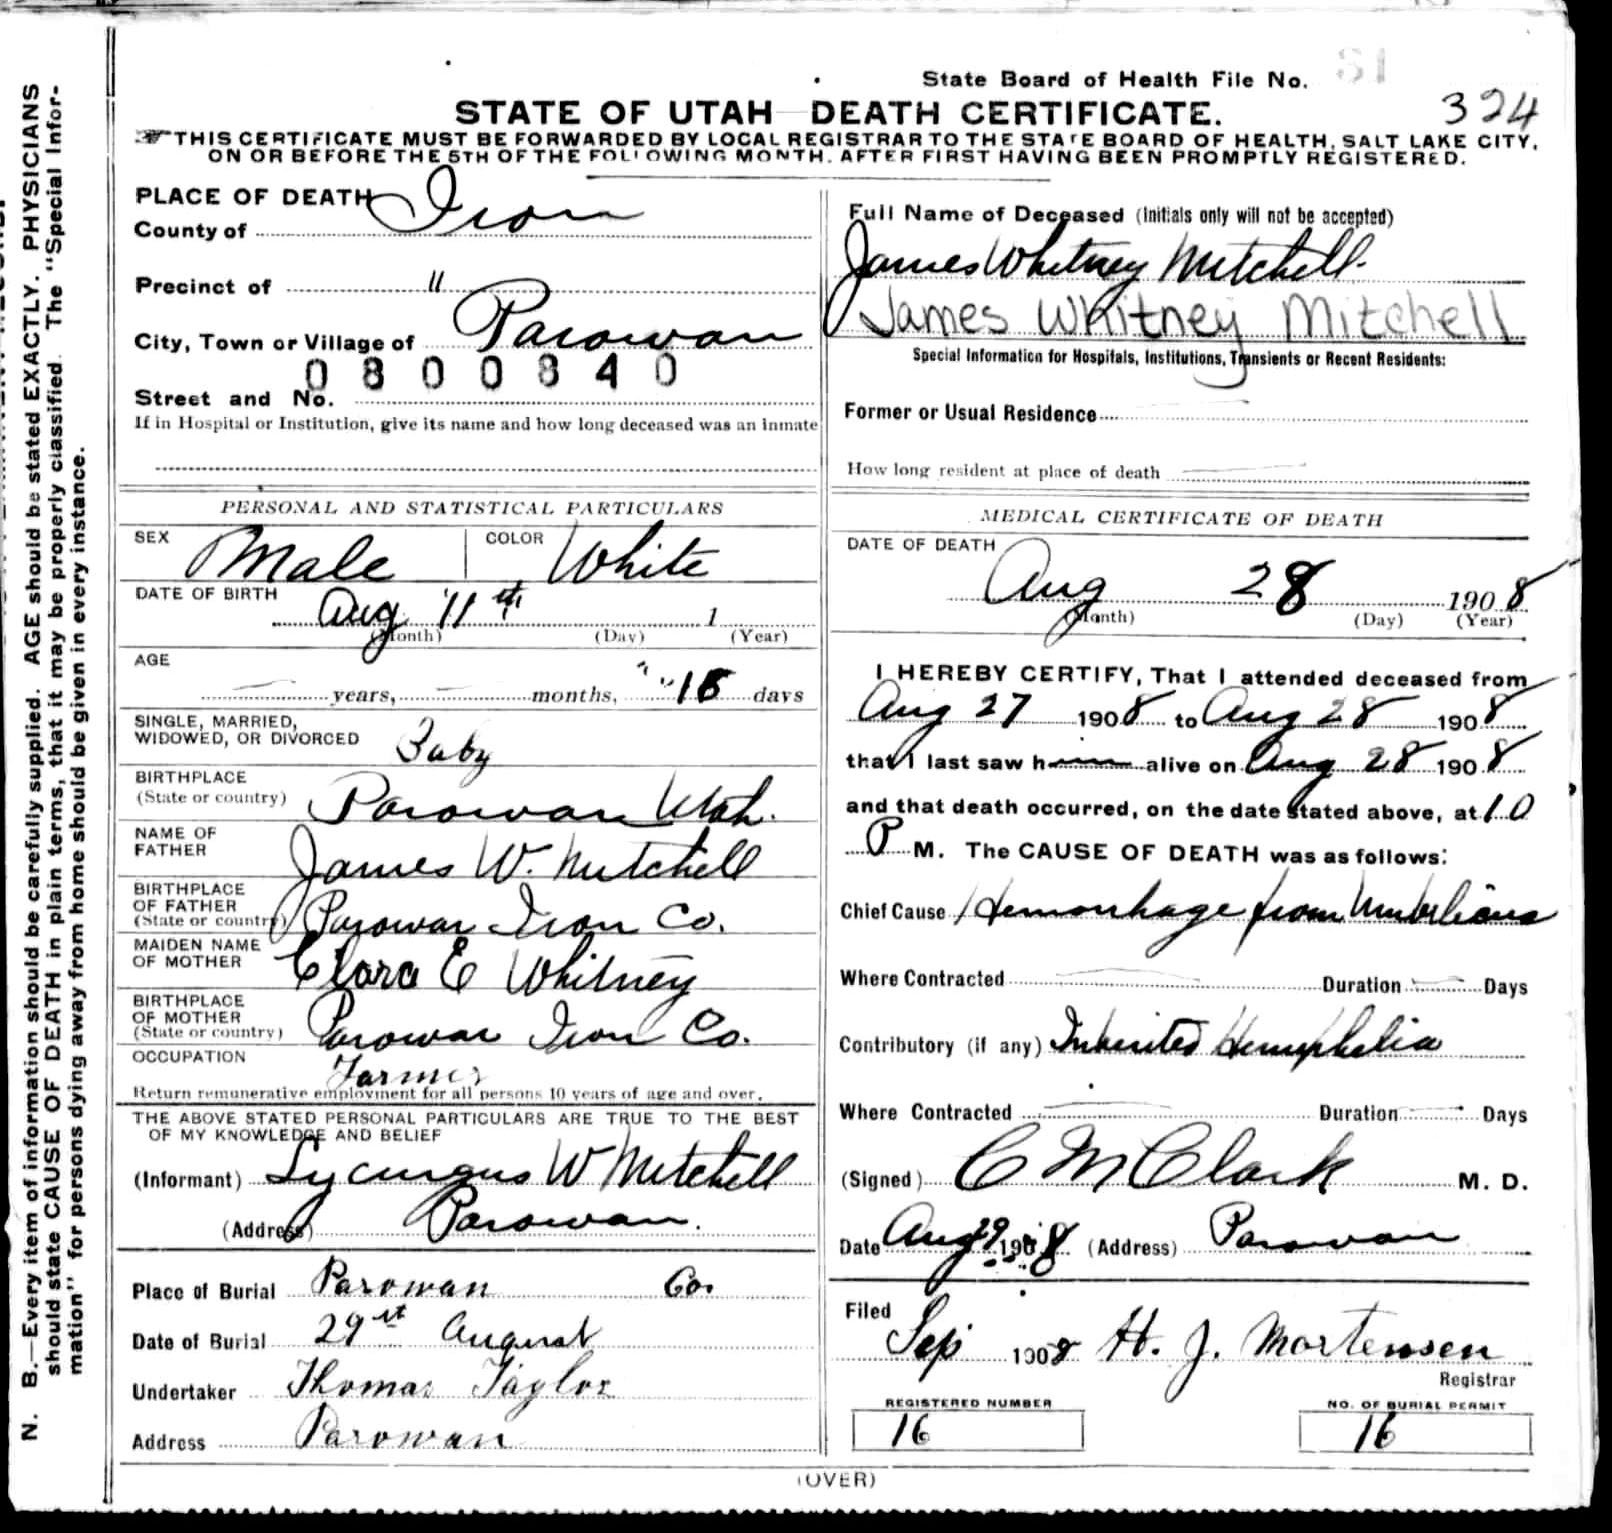 State Board of Health File No. 81
324
STATE OF UTAH—DEATH CERTIFICATE.
THIS CERTIFICATE MUST BE FORWARDED BY LOCAL REGISTRAR TO THE STATE BOARD OF HEALTH, SALT LAKE CITY,
ON OR BEFORE THE 5TH OF THE FOLLOWING MONTH. AFTER FIRST HAVING BEEN PROMPTLY REGISTERED.
N. B.—Every item of information should be carefully supplied. AGE should be stated EXACTLY. PHYSICIANS
should state CAUSE OF DEATH in plain terms, that it may be properly classified. The "Special Infor-
mation" for persons dying away from home should be given in every instance.
PLACE OF DEATH
County of Iron
Precinct of "
City, Town or Village of Parowan
0800840
Street and No.
If in Hospital or Institution, give its name and how long deceased was an inmate
PERSONAL AND STATISTICAL PARTICULARS
SEX Male COLOR White
DATE OF BIRTH
Aug 11th 1
(Month) (Day) (Year)
AGE
years, months, " " 18 days
SINGLE, MARRIED,
WIDOWED, OR DIVORCED Baby
BIRTHPLACE
(State or country) Parowan Utah.
NAME OF
FATHER James W. Mitchell
BIRTHPLACE
OF FATHER
(State or country) Parowan Iron Co.
MAIDEN NAME
OF MOTHER Clara E Whitney
BIRTHPLACE
OF MOTHER
(State or country) Parowan Iron Co.
OCCUPATION
Farmer
Return remunerative employment for all persons 10 years of age and over.
THE ABOVE STATED PERSONAL PARTICULARS ARE TRUE TO THE BEST
OF MY KNOWLEDGE AND BELIEF
(Informant) Lycurgus W Mitchell
(Address) Parowan.
Place of Burial Parowan Co.
Date of Burial 29st August
Undertaker Thomas Taylor
Address Parowan
Full Name of Deceased (Initials only will not be accepted)
James Whitney Mitchell.
James Whitney Mitchell
Special Information for Hospitals, Institutions, Transients or Recent Residents:
Former or Usual Residence
How long resident at place of death
MEDICAL CERTIFICATE OF DEATH
DATE OF DEATH
Aug 28 1908
(Month) (Day) (Year)
I HEREBY CERTIFY, That I attended deceased from
Aug 27 1908 to Aug 28 1908
that I last saw him alive on Aug 28 1908
and that death occurred, on the date stated above, at 10
P M. The CAUSE OF DEATH was as follows:
Chief Cause Hemorrhage from Umbilicus
Where Contracted Duration Days
Contributory (if any) Inherited Hemophelia
Where Contracted Duration Days
(Signed) C M Clark M. D.
Date Aug 29 1908 (Address) Parowan
Filed
Sep 1908 H. J. Mortensen
Registrar
REGISTERED NUMBER
16
NO. OF BURIAL PERMIT
16
(OVER)